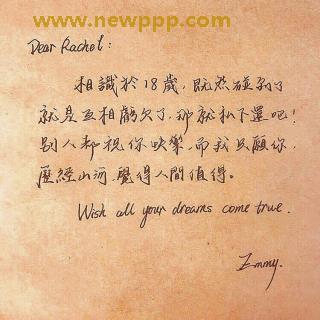 www.newppp.com
Dear Rachel:
相識於18歲,既然碰到了
就是互相虧欠了,那就私下還吧!
別人都祝你快樂,而我只願你,
歷經山河,覺得人間值得。
Wish all your dreams come true.
Emmy.